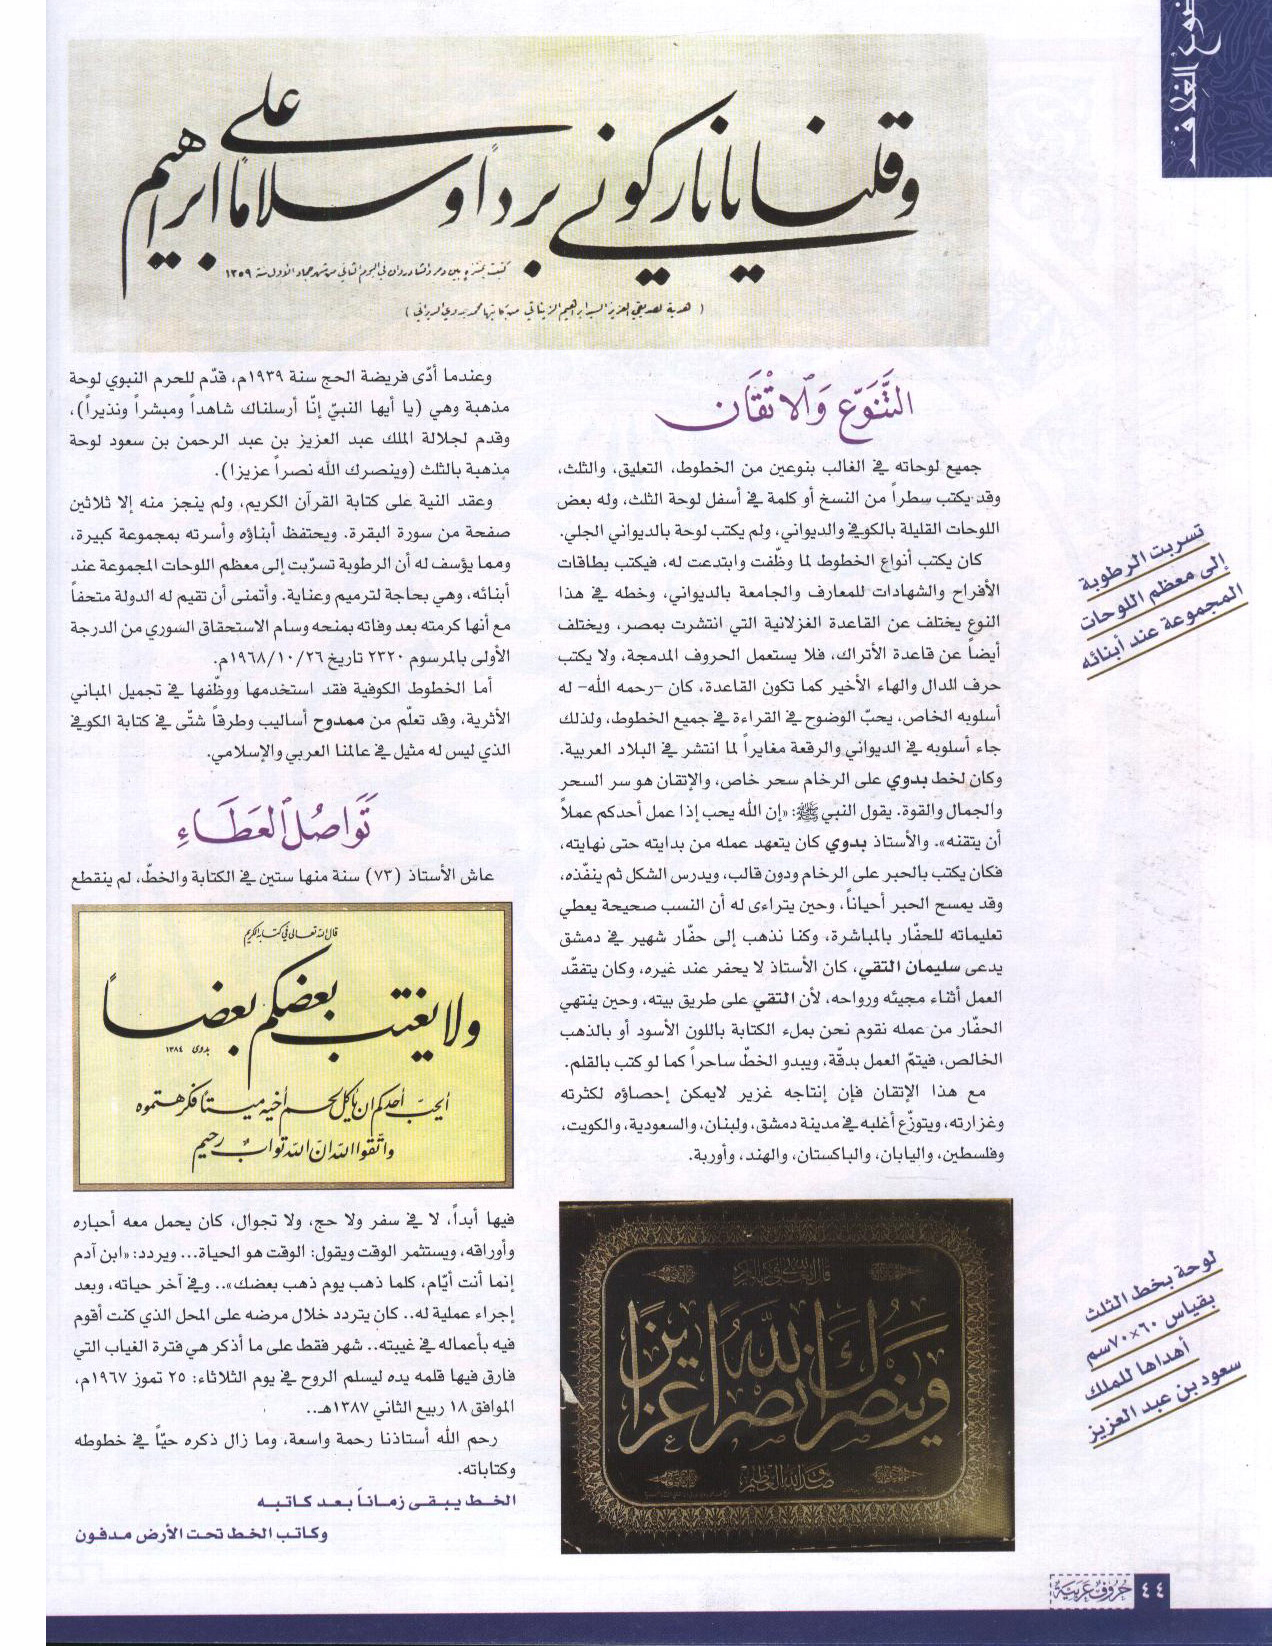 موضوع الغلاف
وقلنا يا نار كوني برداً وسلاماً على ابراهيم
(هدية لصديقي العزيز السيد ابراهيم الزيناتي من كاتبها محمد بدوي الديراني)
التَّنَوُّع وَالاتقَان
جميع لوحاته في الغالب بنوعين من الخطوط، التعليق، والثلث،
وقد يكتب سطراً من النسخ أو كلمة في أسفل لوحة الثلث، وله بعض
اللوحات القليلة بالكوفي والديواني، ولم يكتب لوحة بالديواني الجلي.
كان يكتب أنواع الخطوط لما وظّفت وابتدعت له، فيكتب بطاقات
الأفراح والشهادات للمعارف والجامعة بالديواني، وخطه في هذا
النوع يختلف عن القاعدة الغزلانية التي انتشرت بمصر، ويختلف
أيضاً عن قاعدة الأتراك، فلا يستعمل الحروف المدمجة، ولا يكتب
حرف الدال والهاء الأخير كما تكون القاعدة، كان -رحمه الله- له
أسلوبه الخاص، يحبّ الوضوح في القراءة في جميع الخطوط، ولذلك
جاء أسلوبه في الديواني والرقعة مغايراً لما انتشر في البلاد العربية.
وكان لخط بدوي على الرخام سحر خاص، والإتقان هو سر السحر
والجمال والقوة. يقول النبي ﷺ: «إن الله يحب إذا عمل أحدكم عملاً
أن يتقنه». والأستاذ بدوي كان يتعهد عمله من بدايته حتى نهايته،
فكان يكتب بالحبر على الرخام ودون قالب، ويدرس الشكل ثم ينفّذه،
وقد يمسح الحبر أحياناً، وحين يتراءى له أن النسب صحيحة يعطي
تعليماته للحفّار بالمباشرة، وكنا نذهب إلى حفّار شهير في دمشق
يدعى سليمان التقي، كان الأستاذ لا يحفر عند غيره، وكان يتفقّد
العمل أثناء مجيئه ورواحه، لأن التقي على طريق بيته، وحين ينتهي
الحفّار من عمله نقوم نحن بملء الكتابة باللون الأسود أو بالذهب
الخالص، فيتمّ العمل بدقّة، ويبدو الخطّ ساحراً كما لو كتب بالقلم.
مع هذا الإتقان فإن إنتاجه غزير لايمكن إحصاؤه لكثرته
وغزارته، ويتوزّع أغلبه في مدينة دمشق، ولبنان، والسعودية، والكويت،
وفلسطين، واليابان، والباكستان، والهند، وأوربة.
وينصرك الله نصراً عزيزا
صدق الله العظيم
وعندما أدّى فريضة الحج سنة ١٩٣٩م، قدّم للحرم النبوي لوحة
مذهبة وهي (يا أيها النبيّ إنّا أرسلناك شاهداً ومبشراً ونذيراً)،
وقدم لجلالة الملك عبد العزيز بن عبد الرحمن بن سعود لوحة
مذهبة بالثلث (وينصرك الله نصراً عزيزا).
وعقد النية على كتابة القرآن الكريم، ولم ينجز منه إلا ثلاثين
صفحة من سورة البقرة. ويحتفظ أبناؤه وأسرته بمجموعة كبيرة،
ومما يؤسف له أن الرطوبة تسرّبت إلى معظم اللوحات المجموعة عند
أبنائه، وهي بحاجة لترميم وعناية. وأتمنى أن تقيم له الدولة متحفاً
مع أنها كرمته بعد وفاته بمنحه وسام الاستحقاق السوري من الدرجة
الأولى بالمرسوم ٢٣٢٠ تاريخ ١٩٦٨/١٠/٢٦م.
أما الخطوط الكوفية فقد استخدمها ووظّفها في تجميل المباني
الأثرية، وقد تعلّم من ممدوح أساليب وطرقاً شتّى في كتابة الكوفي
الذي ليس له مثيل في عالمنا العربي والإسلامي.
تَوَاصُل العَطَاءِ
عاش الأستاذ (٧٣) سنة منها ستين في الكتابة والخطّ، لم ينقطع
قال الله تعالى في كتابه الكريم
ولا يغتب بعضكم بعضاً
بدوي ١٣٨٤
أيحبّ أحدكم ان يأكل لحم أخيه ميتاً فكرهتموه
واتّقوا الله انّ الله توابٌ رحيم
فيها أبداً، لا في سفر ولا حج، ولا تجوال، كان يحمل معه أحباره
وأوراقه، ويستثمر الوقت ويقول: الوقت هو الحياة... ويردد: «ابن آدم
إنما أنت أيّام، كلما ذهب يوم ذهب بعضك».. وفي آخر حياته، وبعد
إجراء عملية له.. كان يتردد خلال مرضه على المحل الذي كنت أقوم
فيه بأعماله في غيبته.. شهر فقط على ما أذكر هي فترة الغياب التي
فارق فيها قلمه يده ليسلم الروح في يوم الثلاثاء: ٢٥ تموز ١٩٦٧م،
الموافق ١٨ ربيع الثاني ١٣٨٧هـ..
رحم الله أستاذنا رحمة واسعة، وما زال ذكره حيّاً في خطوطه
وكتاباته.
الخط يبقى زماناً بعد كاتبه
وكاتب الخط تحت الأرض مدفون
تسربت الرطوبة
إلى معظم اللوحات
المجموعة عند أبنائه
لوحة بخط الثلث
بقياس ٦٠×٧٠سم
أهداها للملك
سعود بن عبد العزيز
٤٤ حروف عربية